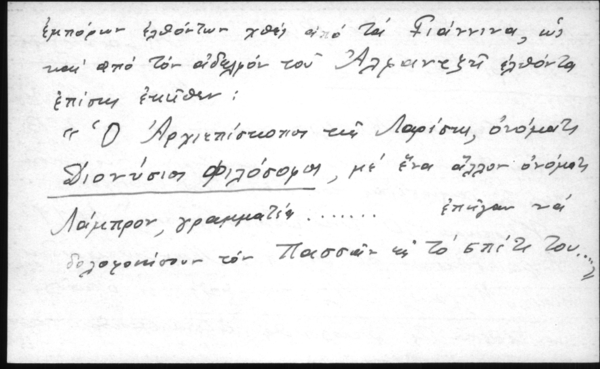 ἐμπόρων ἐλθόντων χθές ἀπό τά Γιάννινα, ὡς
καί ἀπό τόν ἀδελφόν τοῦ ἐλθόντα
ἐπίσης ἐκεῖθεν:
"Ὁ Ἀρχιεπίσκοπος τῆς Λαρίσης, ὀνόματι
Διονύσιος Φιλόσοφος, μέ ἕνα ἄλλον ὀνόματι
Λάμπρον, γραμματέα ....... ἐπῆγαν νά
δολοφονήσουν τόν Πασσᾶν εἰς τό σπίτι του...."